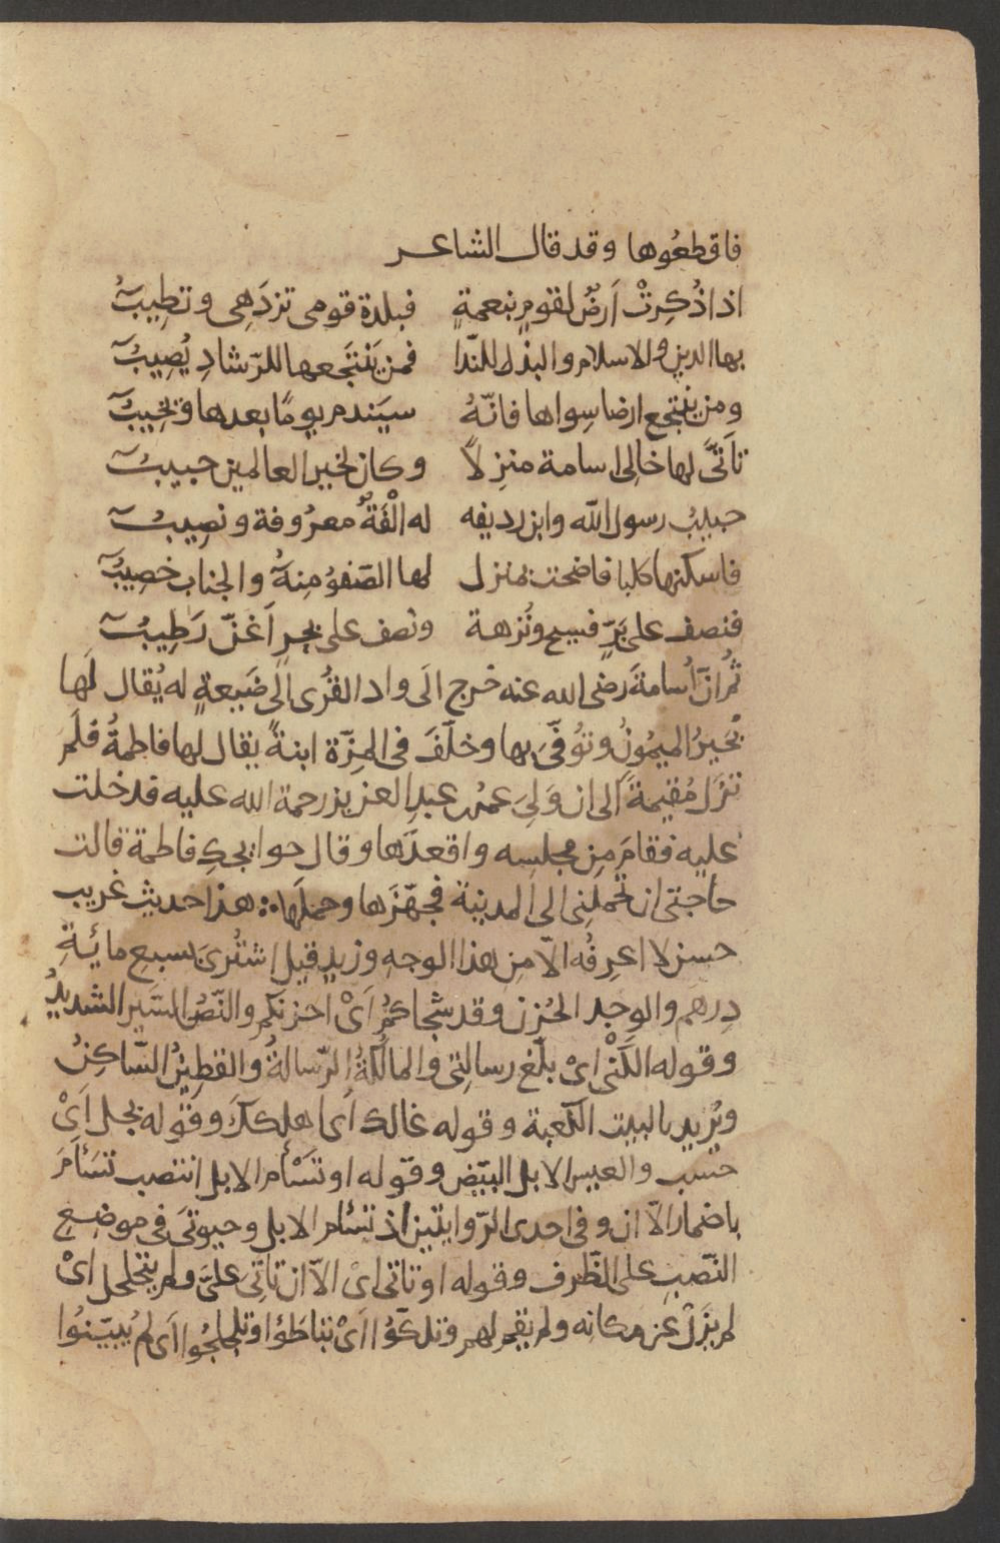 فاقطعُوها وقد قال الشاعر
اذا ذُكِرتْ اَرضٌ لقومٍ بنعمةٍ فبلدة قومى تزدَهِى وتطِيبُ
بها الدين والاسلام والبذل للنّدا فمن يَنتَجعها للرّشادِ يُصِيبُ
ومن ينتجع ارضا سِواها فانّهُ سيَندم يومًا بعدها وَيخِيبُ
تاَتَّى لها خالى اسامة منزِلاً وكان لخير العالمين حبيبُ
حبيبُ رسول الله وابن رديفه له اُلْفَةٌ معرُوفة ونصِيبُ
فاسكنها كلبا فاضحت بمنزل لها الصّفوُ مِنهُ والجناب خصِيبُ
فنصف على بَرٍّ فسيح ونُزهة ونصف على بحرٍ اَغَنّ رَطِيبُ
ثُم انّ اُسامةَ رضى الله عنه خرج الَى واد القُرى الَى ضَيعةٍ له يُقال لَها
بُحَيرُ الميمُونُ وتوُفّىَ بها وخلّفَ فى المِزّة ابنةً يقال لها فاطمةُ فلَم
تزَل مُقيمةً الى ان وَلِىَ عمرُ عبدِ العزيز رحمة الله عليه فدخلت
عليه فقامَ مِن مجلسِه واقعدَها وقال حوايجكِ فاطمة قالت
حاجتى ان تحملِنى الى المدينة فجهّزَها وحملَها هذا حديث غريب
حسن لا اعرِفُه الاّ من هذا الوجهِ وزيد قيل اشتُرىَ بسبعِ مائةِ
دِرهم والوجد الحُزن وقد شجاكمُ اَىْ احزنكم والنّصُ السَير الشديدُ
وقوله الَكْنى اىْ بلّغ رسالتِى والمالكةُ الرّسالةُ والقطِينُ السّاكِنُ
ويُريد بالبيت الكعبة وقوله غالك اَى اهلككَ وقوله بجل اَىْ
حسْب والعيس الابل البيّض وقوله او تسْأم الابل انتصب تسَأمَ
باضمار الاّ ان وفى احدى الرّوايتين اذ تسْأم الابل وحيوتىَ فى موضِع
النّصبِ على الظّرف وقوله او تاتى اىْ الاّ ان تاَتِىَ علىّ ولم يتحلحل اىْ
لم يزَلْ عن مكانه ولم يقم لهم وتلكّؤُا اَىْ تباطَؤُا وتلجلجُوا اَى لم يُبيّنُوا